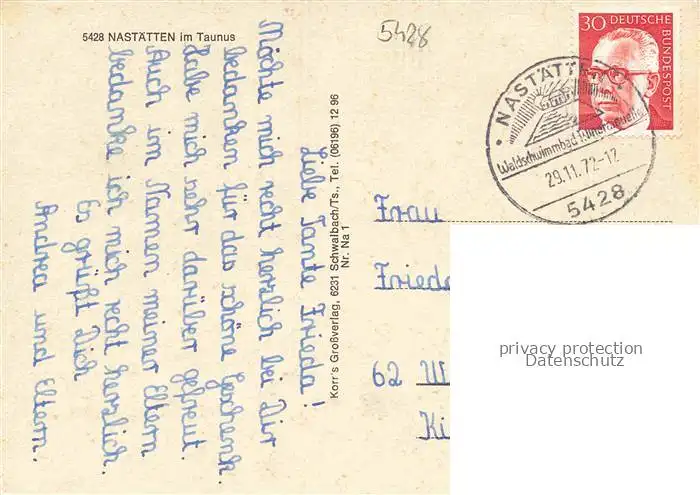 5428 NASTÄTTEN im Taunus
5428
Liebe Tante Frieda!
Möchte mich recht herzlich bei Dir
bedanken für das schöne Geschenk.
Habe mich sehr darüber gefreut.
Auch im Namen meiner Eltern
bedanke ich mich recht herzlich
Es grüßt Dich
Andrea und Eltern.
Korr's Großverlag, 6231 Schwalbach/Ts., Tel. (06196) 12 96
Nr. Na 1
30 DEUTSCHE BUNDESPOST
NASTÄTTEN
Waldschwimmbad Mineralquelle
29.11.72-12
5428
Frau
Frieda
62 W
Ki
privacy protection
Datenschutz